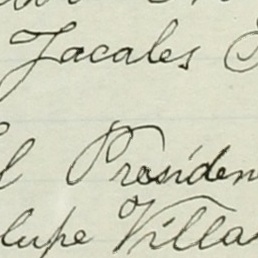 Jacales
l Presiden
lupe Villa